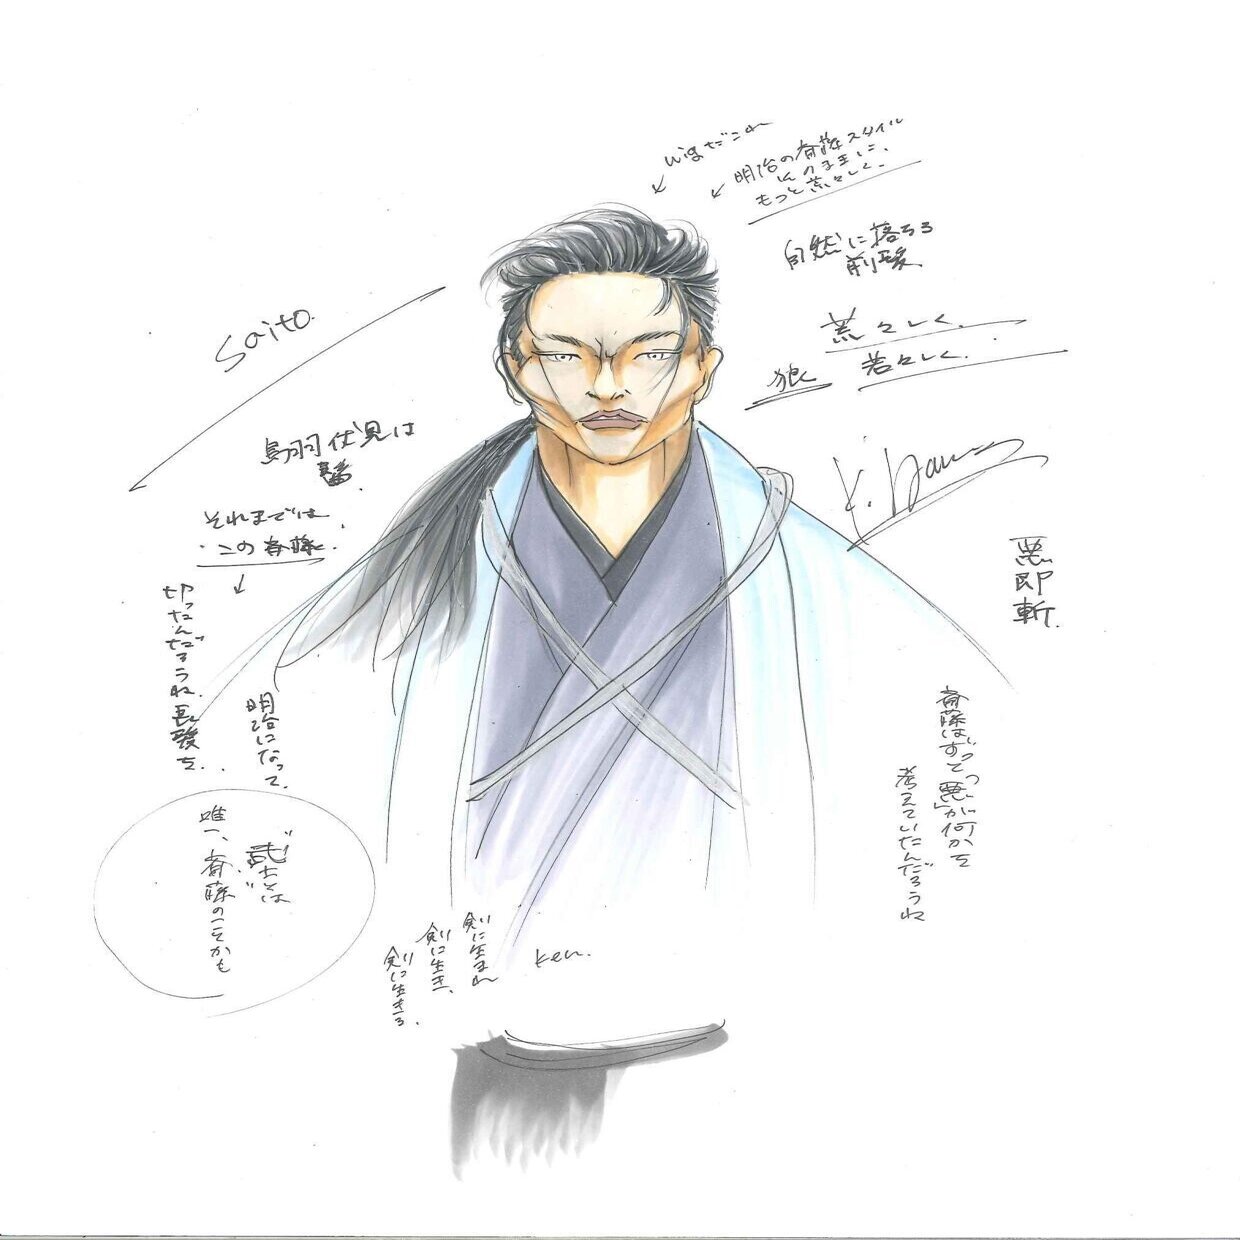 wigだこれ
明治の斎藤スタイル
そのままに、
もっと荒々しく。
自然に落ちる
前髪
荒々しく。
若々しく。
狼
Saito
鳥羽伏見は
それまでは
この斎藤。
切ったんだろうね。長髪を。
明治になって。
武士とは
唯一、斎藤のことかも
悪即斬。
斎藤はずっと"悪"が何かを
考えていたんだろうね
剣に生まれ
剣に生き、
剣に生きる。
Ken.